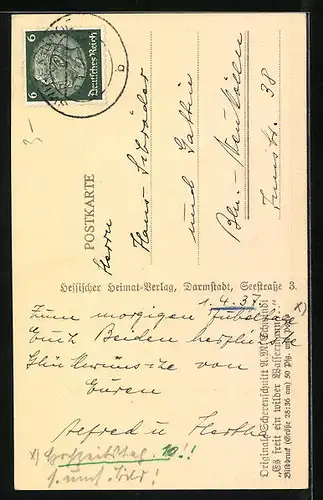 6
Deutsches Reich
6
b
3-
POSTKARTE
Herrn
Hans Schröder
und Gattin
Bln.-Neukölln
Innstr. 38
Hessischer Heimat-Verlag, Darmstadt, Seestraße 3.
1.4.37.
Zum morgigen Jubeltage x)
Euch Beiden herzlichste
Glückwünsche von
Euren
Alfred u Hertha
x) Hochzeitstag 10!!
s. umst. Bild!
Original-Scherenschnitt A. M. Schwindt
„Es freit ein wilder Wassermann“
Bilddruck (Größe 28:36 cm) 50 Pfg. und Porto